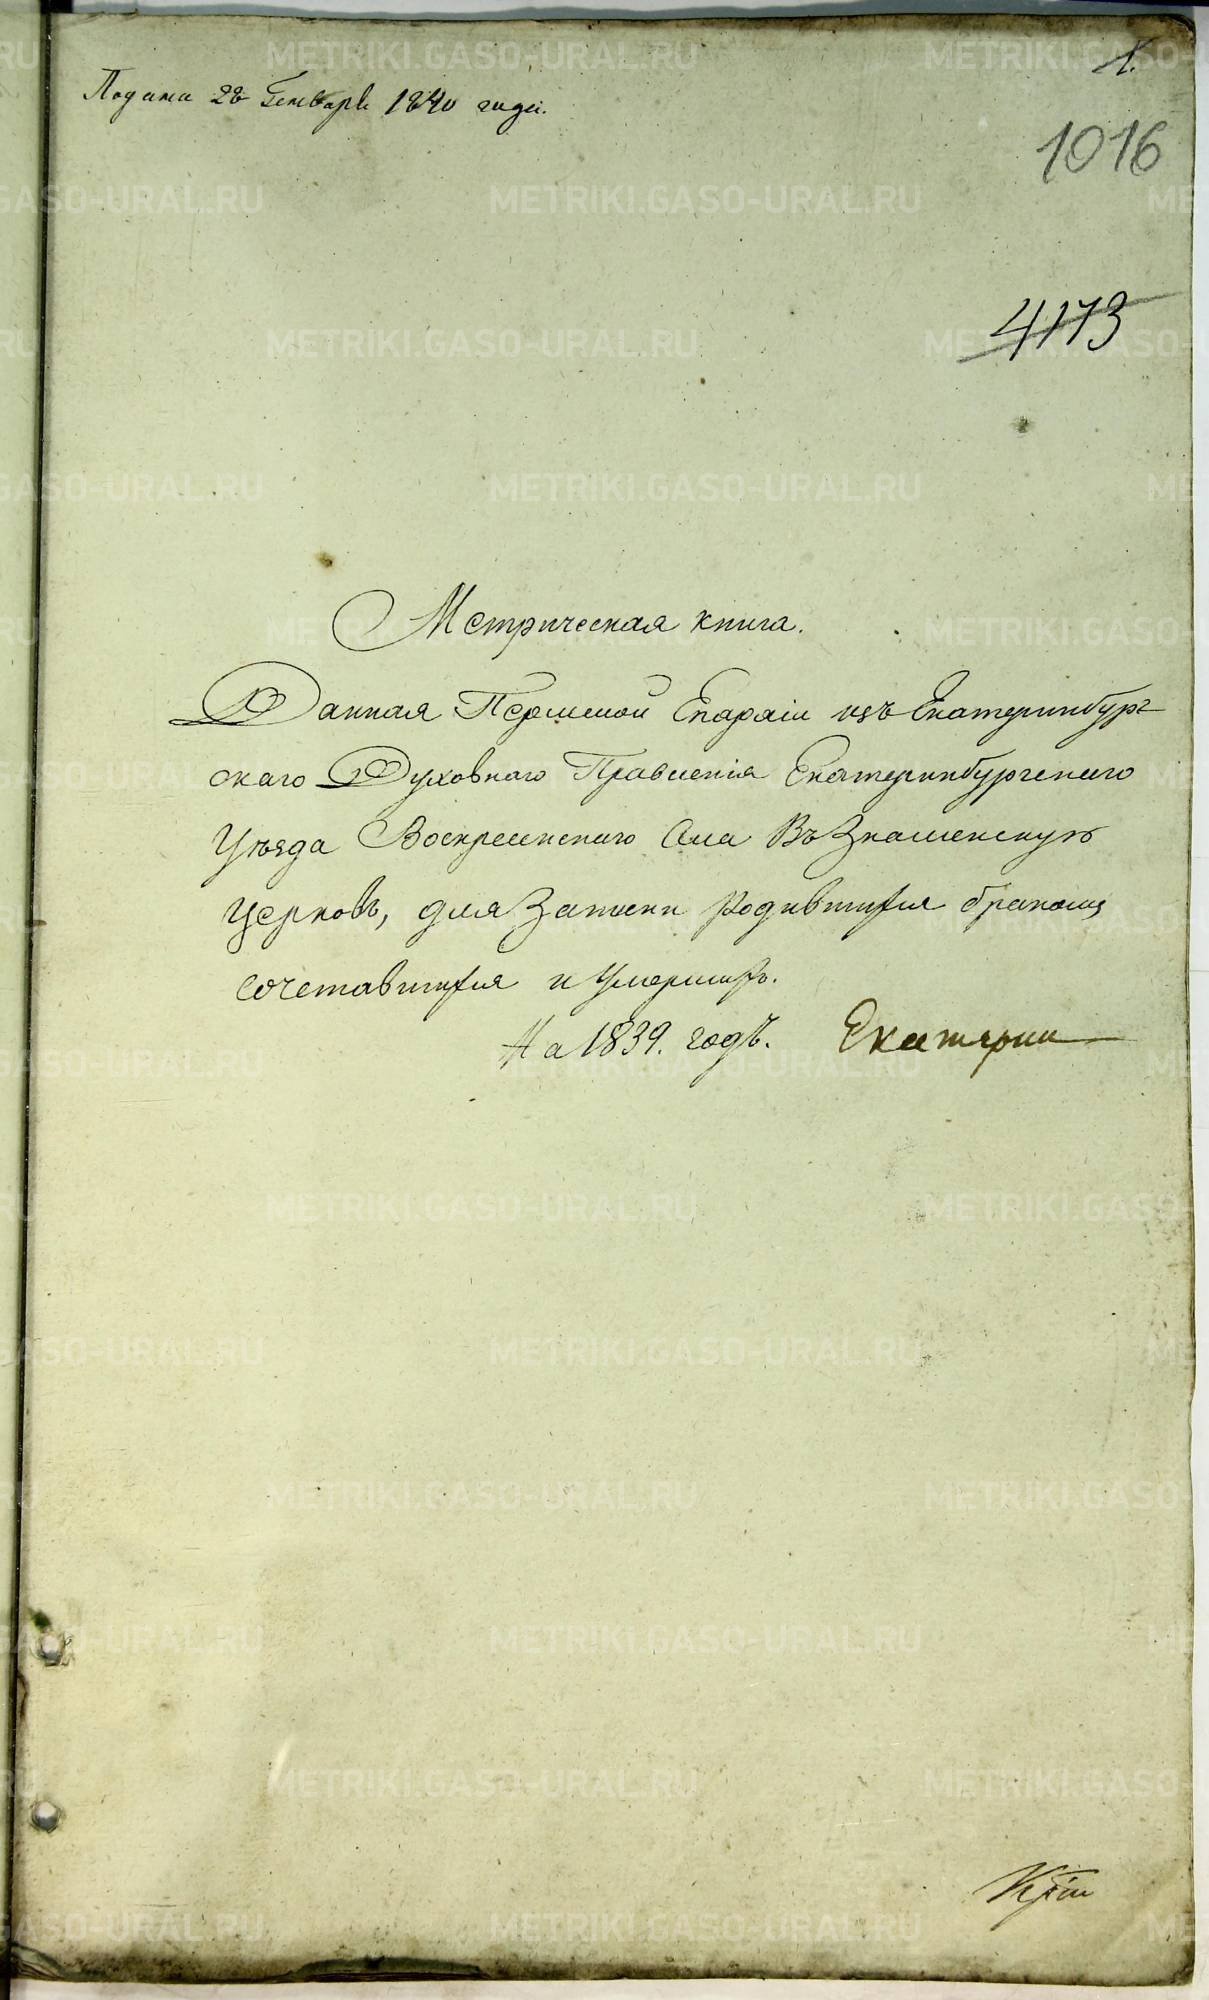 1.
Подана 28 Генваря 1840 года.
1016
4173
Метрическая книга.
Данная Пермской Епархіи изъ Екатеринбург-
скаго Духовнаго Правленія Екатеринбургскаго
Уѣзда Воскресенскаго Села Въ Знаменскую
Церковь, для Записки родившихся бракомъ
сочетавшихся и Умершихъ.
На 1839. годъ. Екатерин